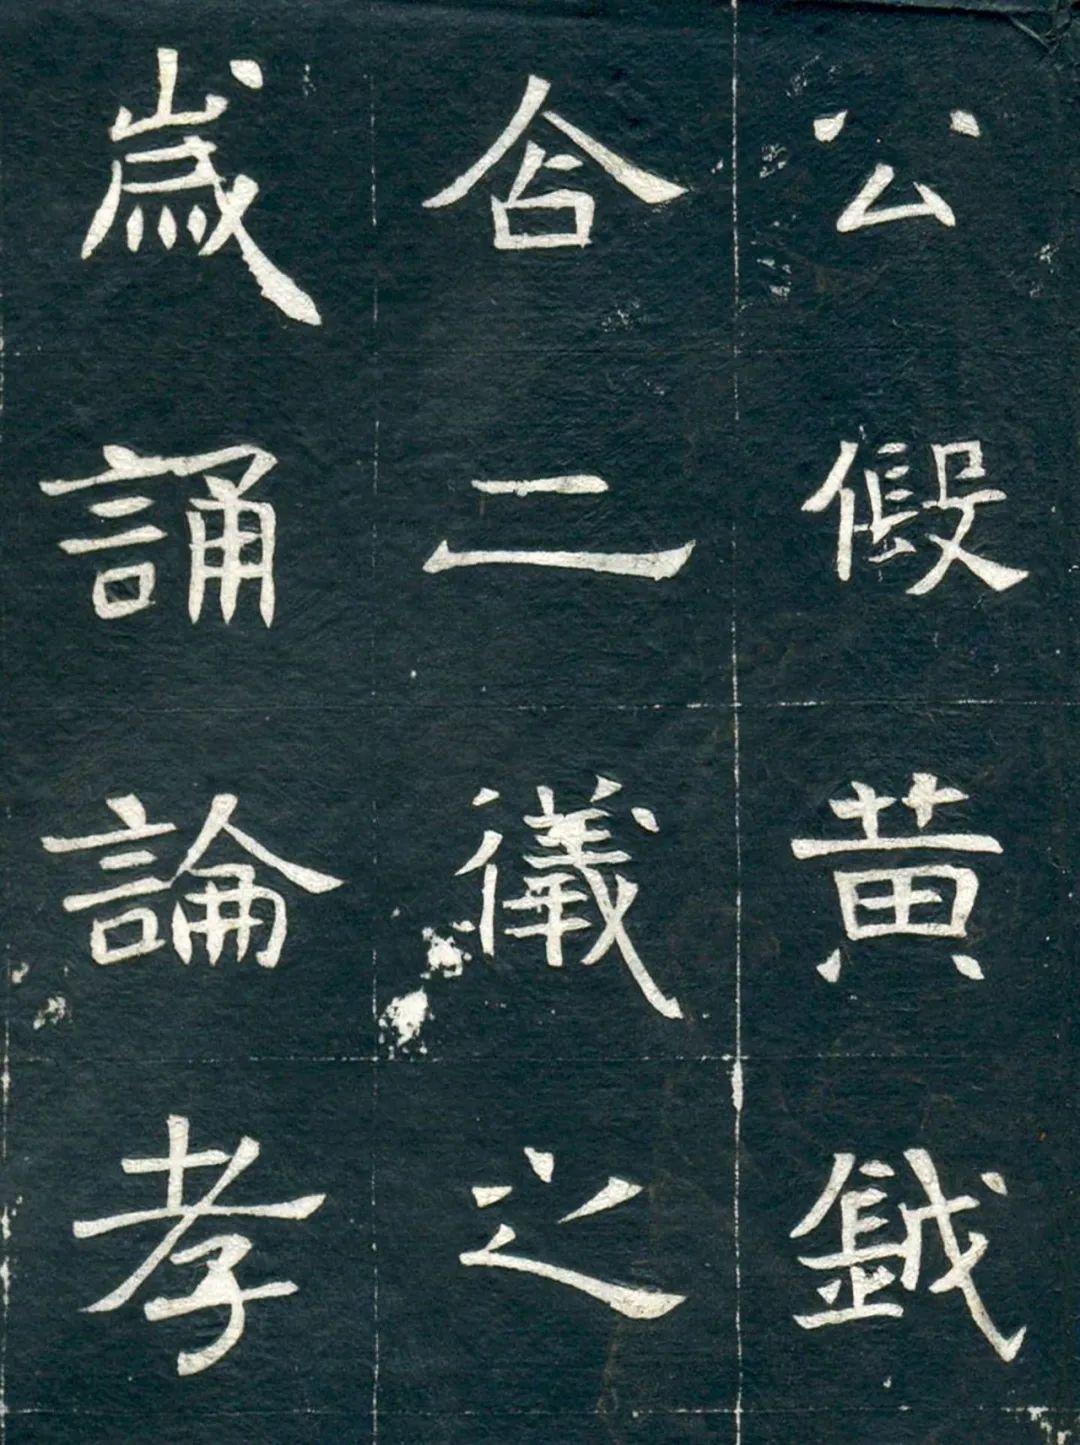 公假黄鉞
含二儀之
歲誦論孝